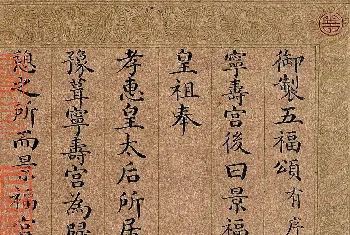 御製五福頌有序
寧壽宮後曰景福
皇祖奉
孝惠皇太后所居
豫葺寧壽宮為歸
憩之所而景福宮